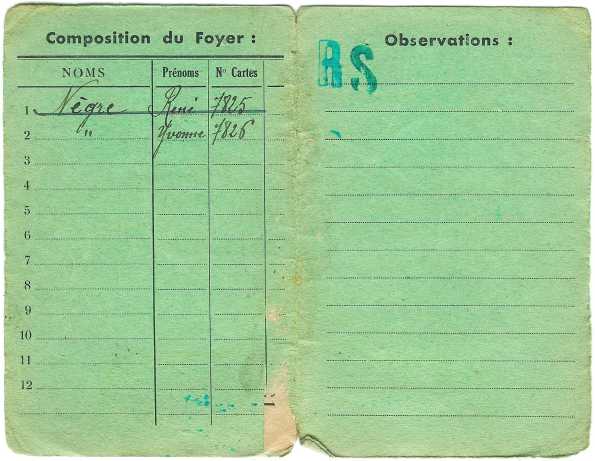 Composition du Foyer :
NOMS Prénoms Nº Cartes
1 Nègre René 7825
2 " Yvonne 7826
3
4
5
6
7
8
9
10
11
12
Observations :
RS